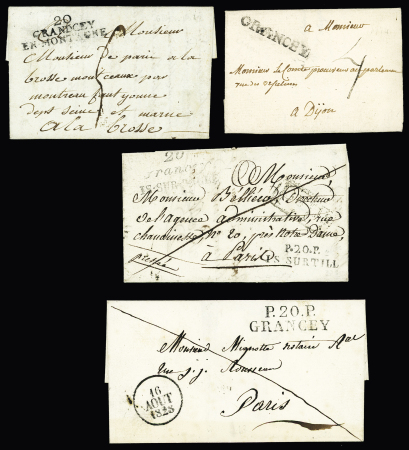 20
GRANDCEY
EN MONTAGNE
Monsieur
Monsieur de paris a la
brosse montceaux par
montreau faut yonne
depts seine et marne
a la brosse
GRANCEY
a Monsieur
Monsieur le Comte
rue du
7
a Dijon
20
Grancey
IS-SUR-TILLE
Monsieur
Monsieur Directeur
de l'agence administrative, rue
chanoinesse, n° 20, près Notre Dame,
pressée
a Paris
P.20.P.
IS SURTILL
P.20.P.
GRANCEY
Monsieur Mignotte notaire Ral
rue j. j. Rousseau
Paris
16
AOUT
1828